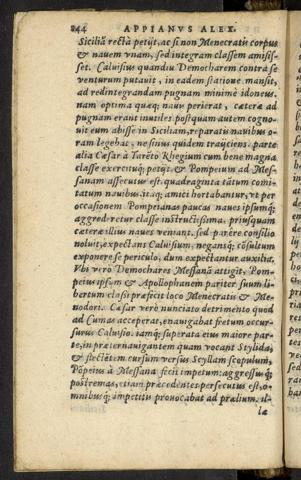 244 APPIANVS ALEX.
Siciliã rectà petijt, ac si non Menecratis corpus
& nauem vnam, sed integram classem amisis-
set. Caluisius quandiu Democharem contra se
venturum putauit, in eadem statione mansit,
ad redintegrandam pugnam minimè idoneus.
nam optima quæq; nauis perierat, cæteræ ad
pugnam erant inutiles: postquam autem cogno-
uit eum abisse in Siciliam, reparatis nauibus o-
ram legebat, ne sinus quidem trayciens. parte
alia Cæsar à Tarẽto Rhegium cum bene magna
classe exercituq; petijt, & Pompeium ad Mes-
sanam assecutus est, quadraginta tãtum comi-
tatum nauibus. itaq; amici hortabantur, vt per
occasionem Pompeianas paucas naues ipsumq;
aggrederetur classe instructissima, priusquam
cæteræ illius naues veniant. sed parere consilio
noluit, expectans Caluisium, negansq; cõsultum
exponere se periculo, dum expectantur auxilia.
Vbi verò Demochares Messanã attigit, Pom-
peius ipsum & Apollophanem pariter suum li-
bertum classi præfecit loco Menecratis & Me-
nodori. Cæsar verò nunciato detrimento quod
ad Cumas acceperat, enauigabat fretum occur-
surus Caluisio. iamq; superata eius maiore par-
te, in præternauigantem quam vocant Stylida,
& flectẽtem cursum versus Scyllam scopulum,
Põpeius à Messana fecit impetum: aggressusq;
postremas, etiam præcedentes persecutus est, o-
mnibusq; impetitis prouocabat ad prælium. il-
læ